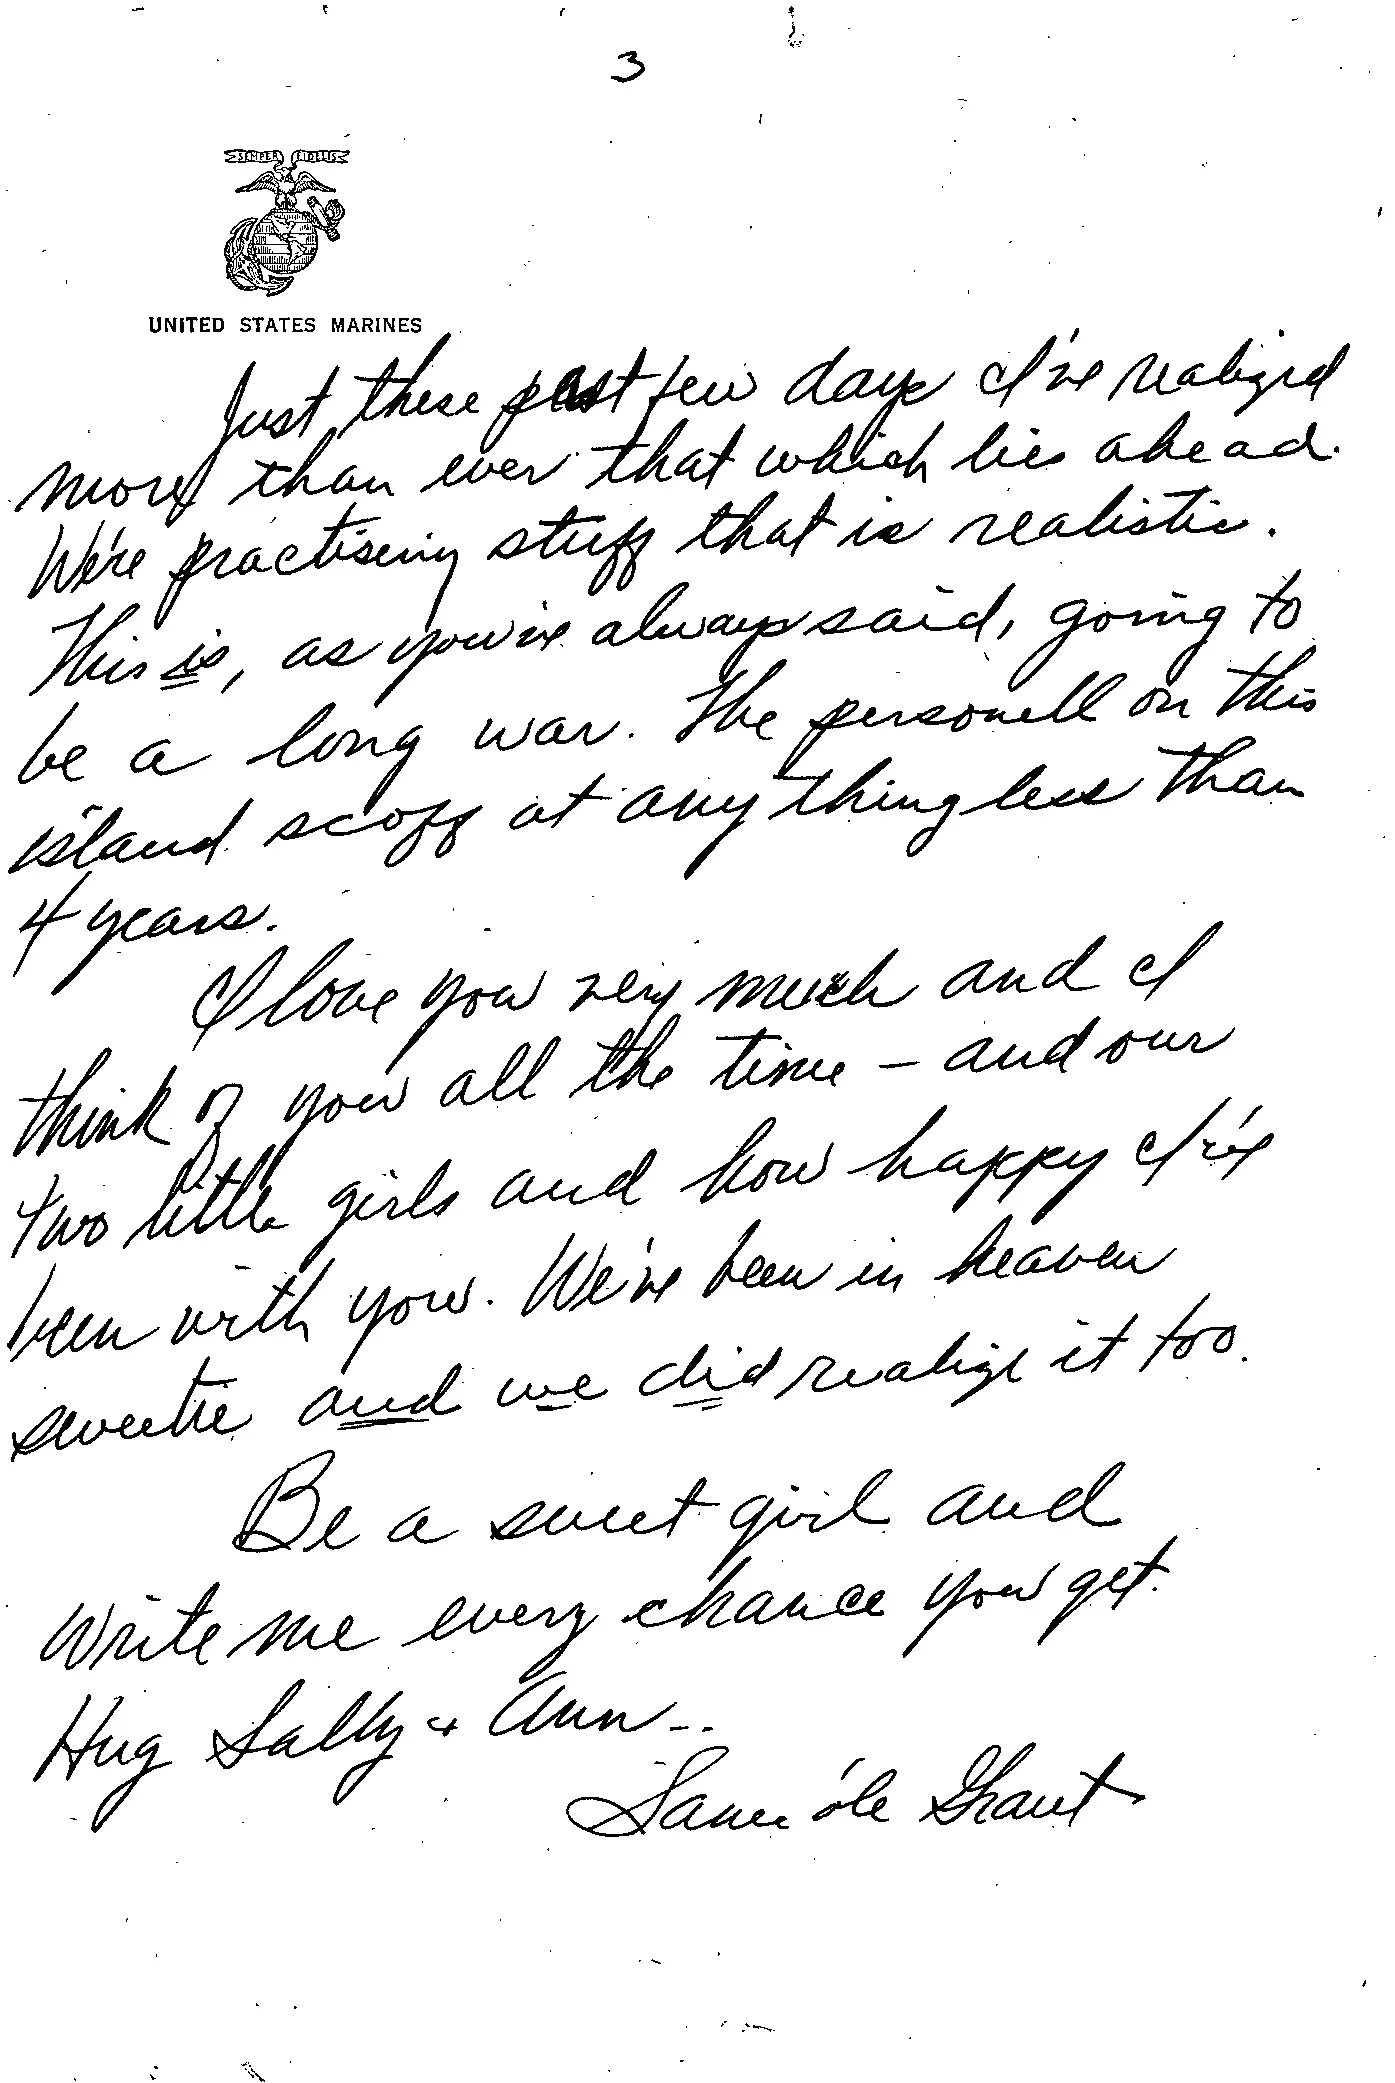 3
SEMPER FIDELIS
UNITED STATES MARINES
Just these past few days I've realized
more than ever that which lies ahead.
We're practiseing stuff that is realistic.
This is, as you've always said, going to
be a long war. The personell on this
island scoff at anything less than
4 years.
I love you very much and I
think of you all the time – and our
two little girls and how happy I've
been with you. We've been in heaven
sweetie and we did realize it too.
Be a sweet girl and
Write me every chance you get.
Hug Sally + Ann --
Same óle Grant